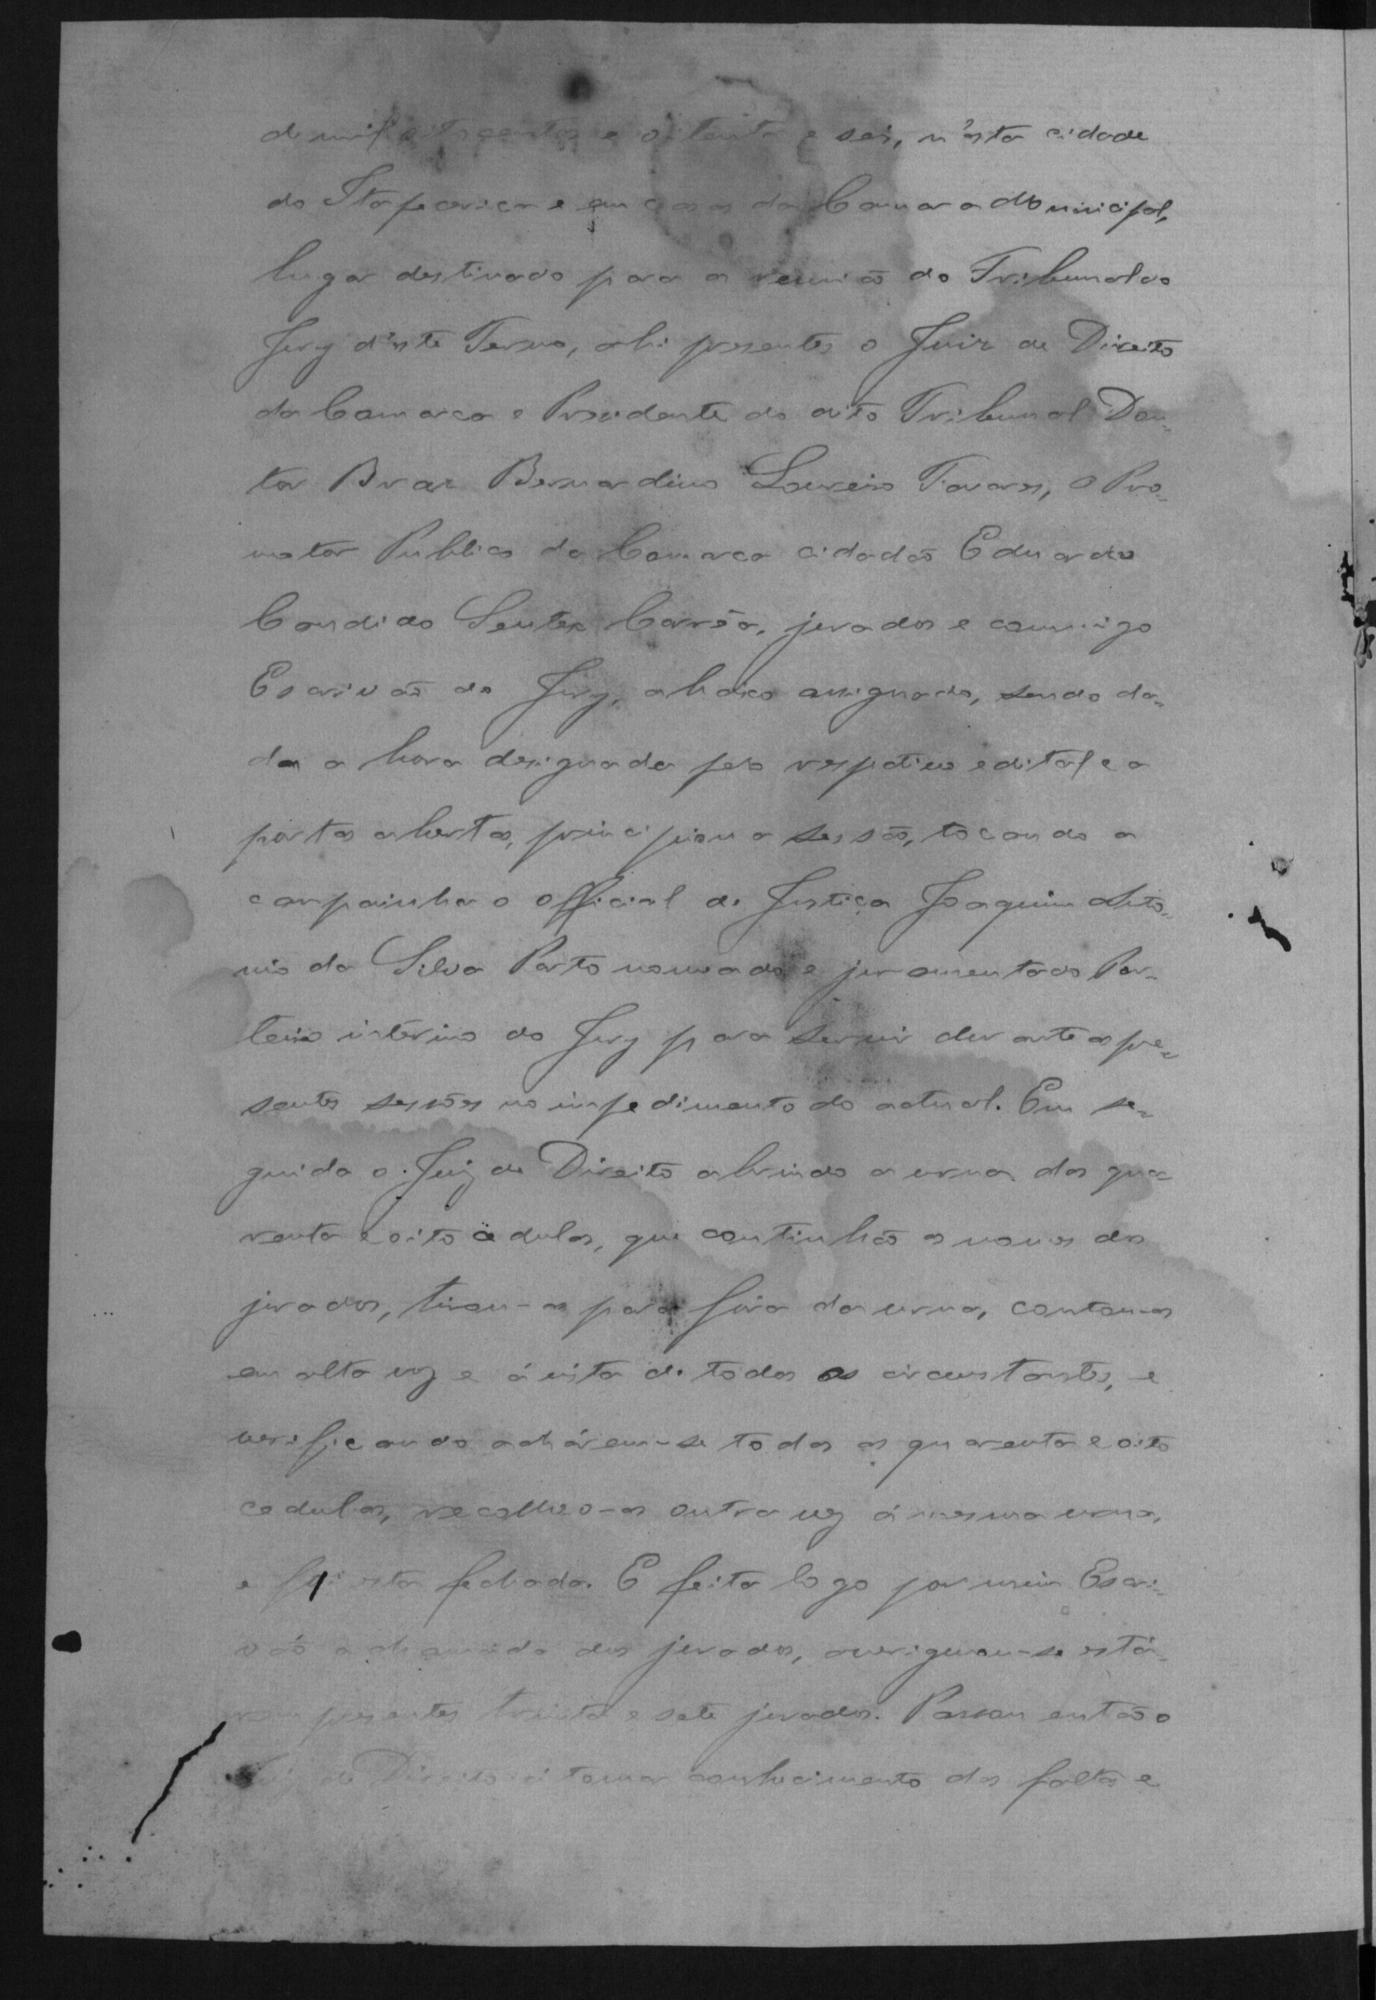 de mil oitocentos e oitenta e seis, n'esta cidade
do Itapecerica e em casa da Camara Municipal,
lugar destinado para a reunião do Tribunal do
Jury d'este Termo, ahi presentes o Juiz de Direito
da Comarca e Presidente do dito Tribunal Dou-
tor Braz Bernardino Loureiro Tavares, o Pro-
motor Publico da Comarca cidadão Eduardo
Candido Corrêa, jurados e commigo
Escrivão do Jury, abaixo assignado, sendo da-
da a hora designada pelo respetivo edital e a
portas abertas, principiou a sessão, tocando a
campainha o official de Justiça Joaquim Anto-
nio da Silva Porto nomeado e juramentado Por-
teiro interino do Jury para servir durante as pre-
sentes sessões no impedimento do actual. Em se-
guida o Juiz de Direito abrindo a urna das qua-
renta e oito cedulas, que continhão os nomes dos
jurados, tirou-as para fóra da urna, contou-as
em alta voz e á vista de todos os circunstantes, e
verificando acharem-se todas as quarenta e oito
cedulas, recolheo-as outra vez á mesma urna,
e foi esta fechada. E feita logo por mim Escri-
vão a chamada dos jurados, averiguou-se está-
rem presentes trinta e sete jurados. Passou então o
Juiz de Direito á tomar conhecimento das faltas e